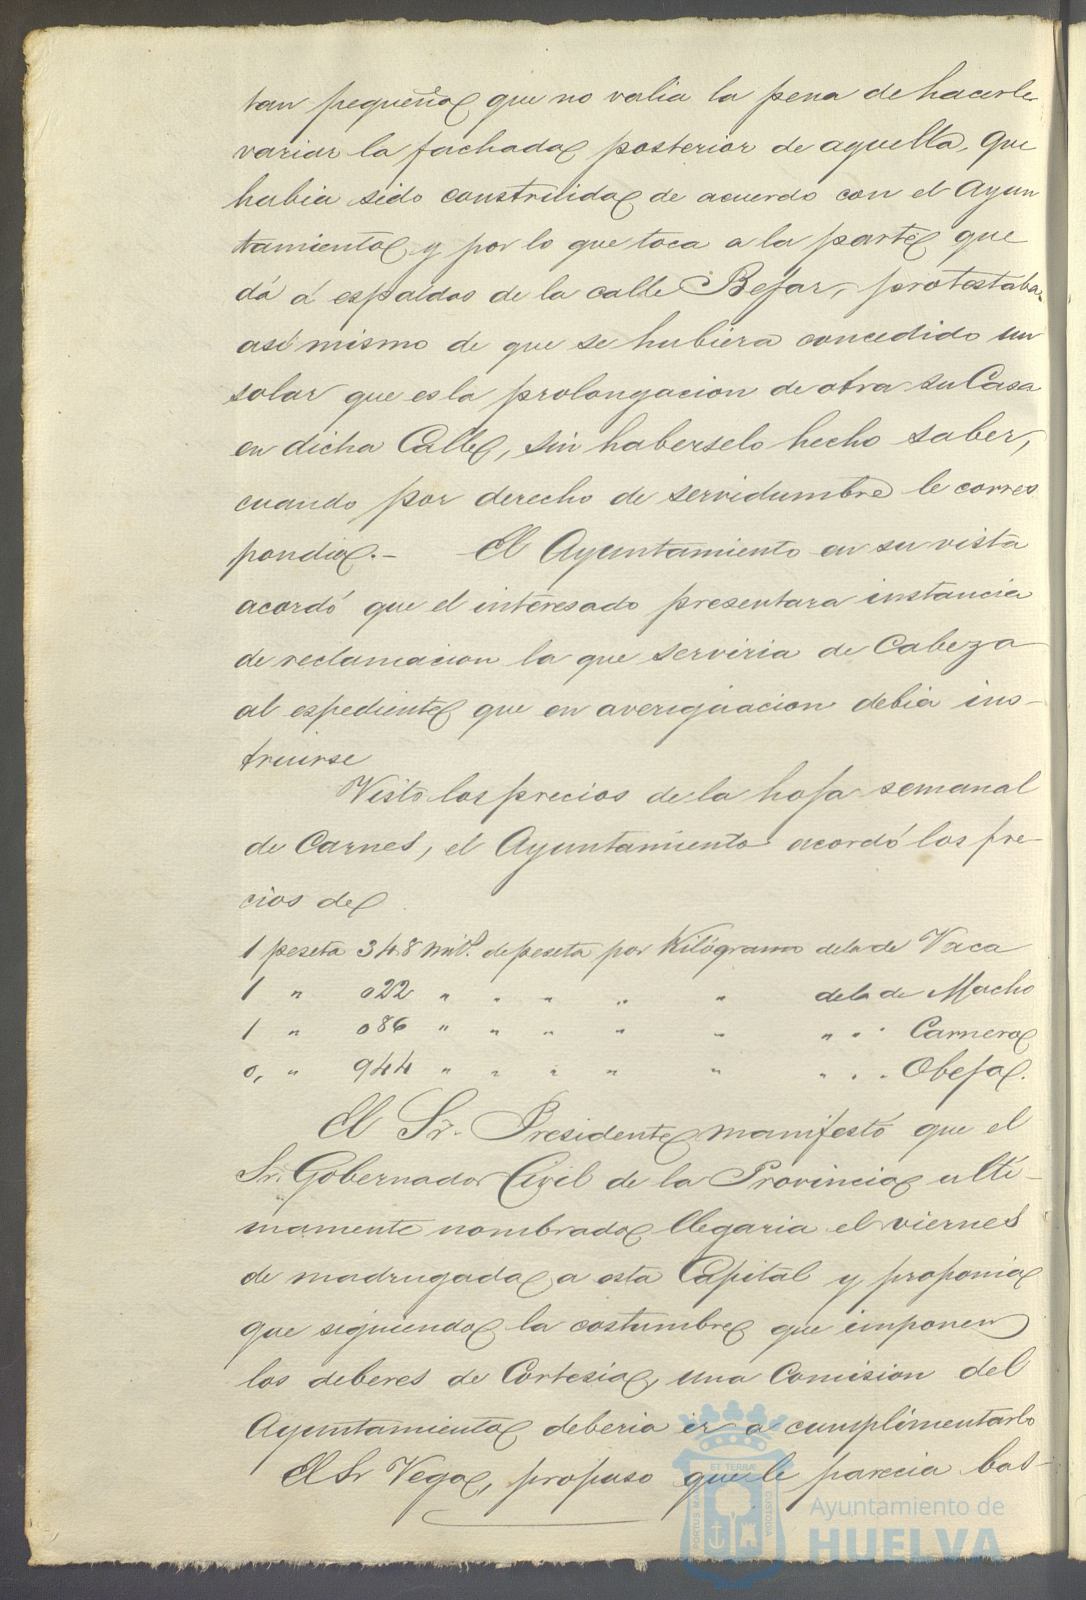 tan pequeña que no valia la pena de hacerle
variar la fachada posterior de aquella, que
habia sido construida de acuerdo con el Ayun
tamiento y por lo que toca a la parte que
dá á espaldas de la calle Bejar, protestaba
asi mismo de que se hubiera concedido un
solar que es la prolongacion de otra su Casa
en dicha Calle, sin haberselo hecho saber,
cuando por derecho de servidumbre le corres
pondia.- El Ayuntamiento en su vista
acordó que el interesado presentara instancia
de reclamacion la que serviria de Cabeza
al espediente que en averiguacion debia ins-
truirse
Visto los precios de la hoja semanal
de Carnes, el Ayuntamiento acordó los pre-
cios de
1 peseta 348 mils. de peseta por Kilógramo de la de Vaca
1 " 022 " " " " " de la de Macho
1 " 086 " " " " " " " " Carnero
0, " 944 " " " " " " " " Obeja.
El Sr. Presidente manifestó que el
Sr. Gobernador Civil de la Provincia ulti-
mamente nombrado llegaria el viernes
de madrugada a esta Capital y proponia
que siguiendo la costumbre que imponen
los deberes de Cortesia, una Comision del
Ayuntamiento deberia ir a cumplimentarlo
El Sr Vega, propuso que le parecia bas-
Ayuntamiento de
HUELVA